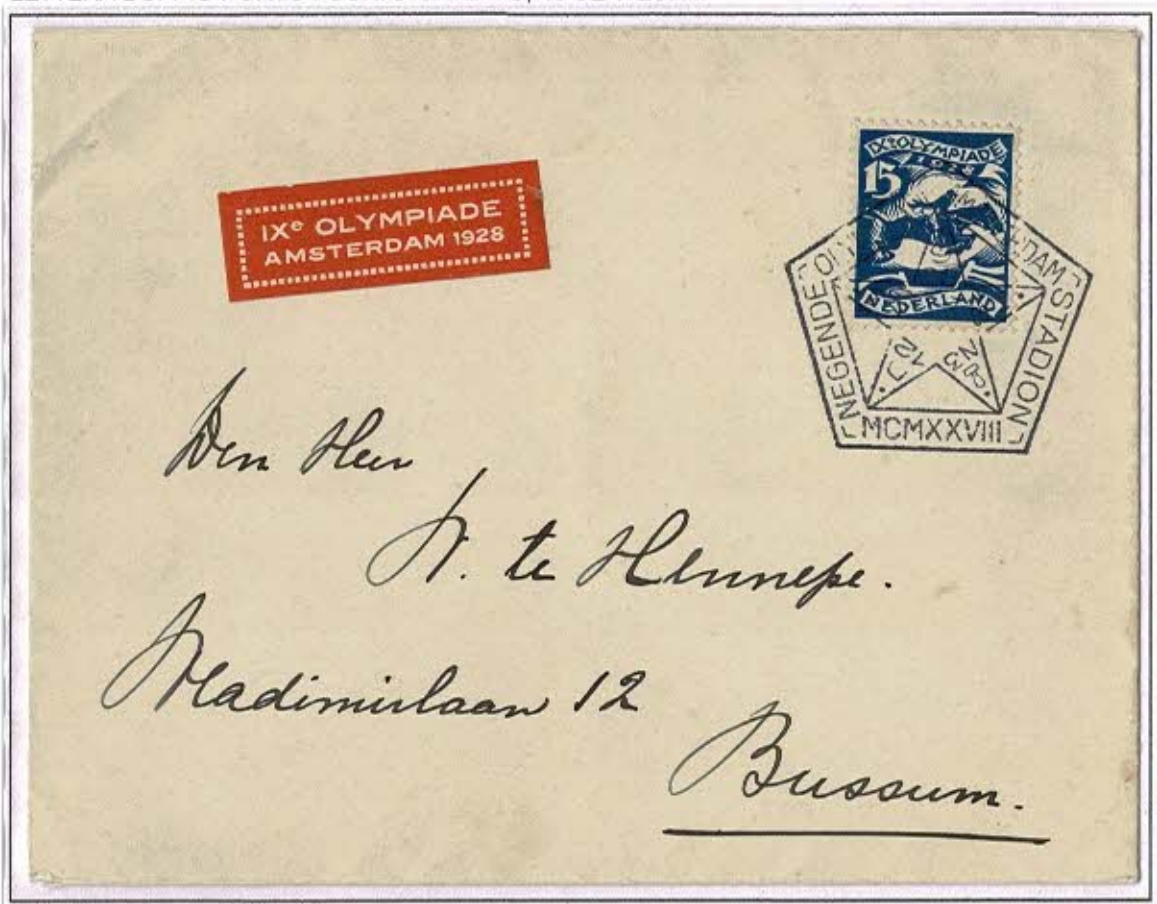 IXe OLYMPIADE
AMSTERDAM 1928
IXe OLYMPIADE
1928
15
NEDERLAND
NEGENDE
DAM STADION
MCMXXVIII
Den Heer
te Hennepe.
12
Bussum.